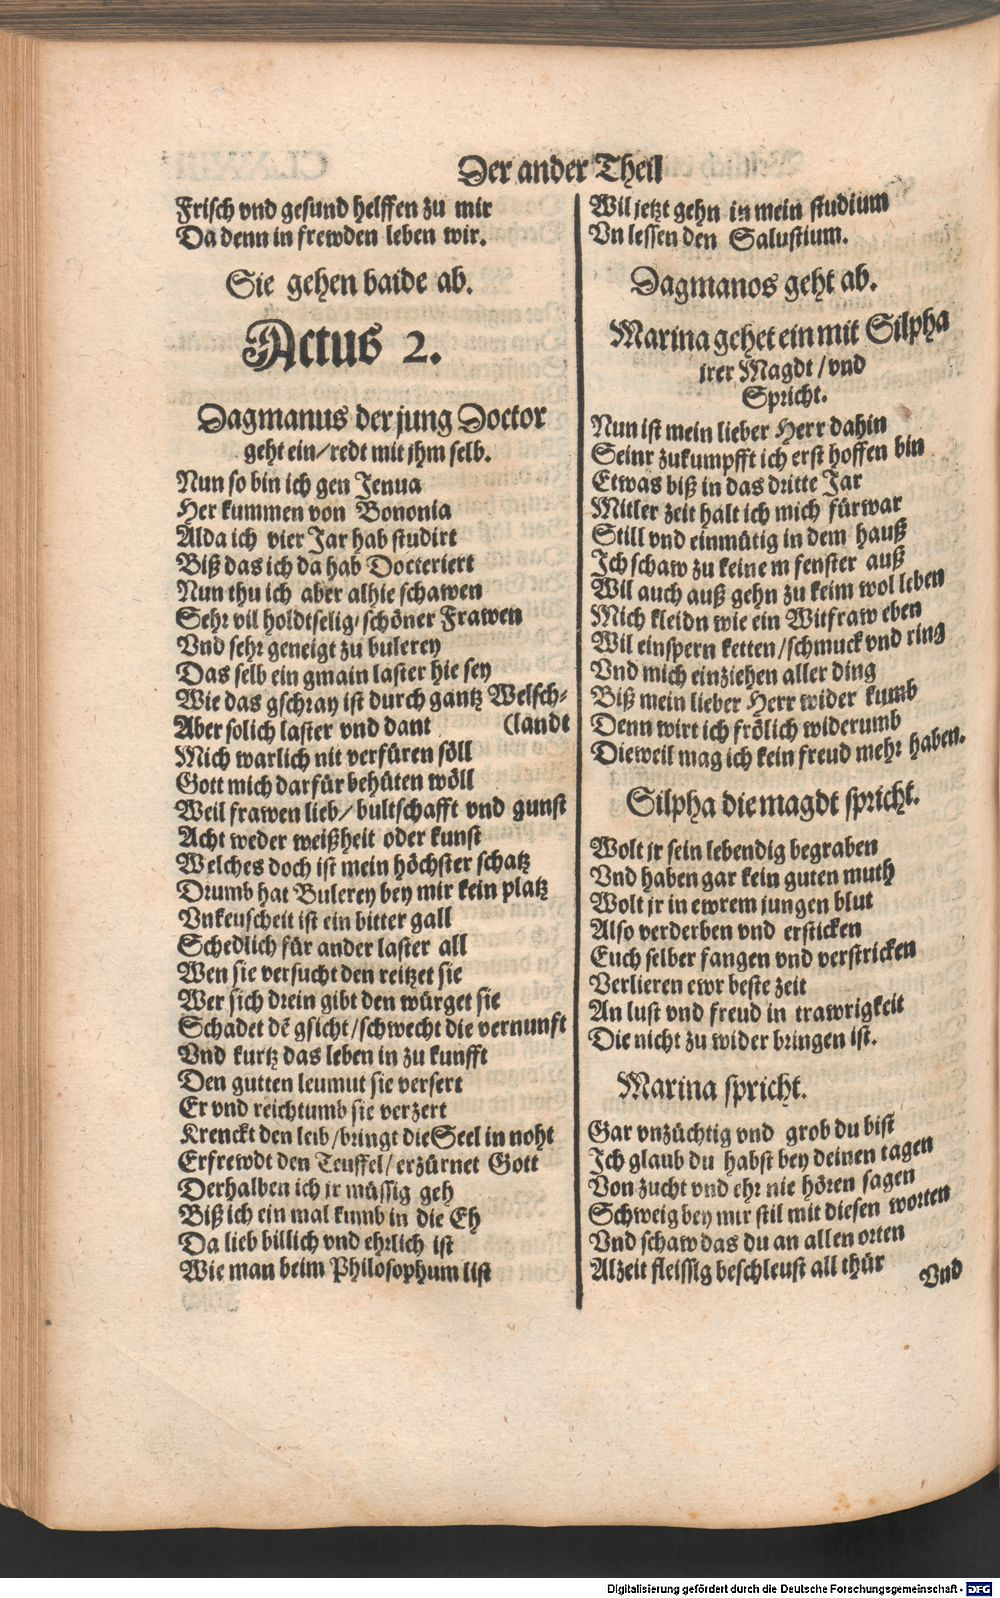 Der ander Theil
Frisch vnd gesund helffen zu mir
Da denn in frewden leben wir.
Sie gehen baide ab.
Actus 2.
Dagmanus der jung Doctor
geht ein/redt mit ihm selb.
Nun so bin ich gen Jenua
Her kummen von Bononia
Alda ich vier Jar hab studirt
Biß das ich da hab Docteriert
Nun thu ich aber alhie schawen
Sehr vil holdtselig/schöner Frawen
Vnd sehr geneigt zu bulerey
Das selb ein gmain laster hie sey
Wie das gschray ist durch gantz Welsch-
Aber solich laster vnd dant (landt
Mich warlich nit verfüren söll
Gott mich darfür behüten wöll
Weil frawen lieb/bultschafft vnd gunst
Acht weder weißheit oder kunst
Welches doch ist mein höchster schatz
Drumb hat Bulerey bey mir kein platz
Vnkeuscheit ist ein bitter gall
Schedlich für ander laster all
Wen sie versucht den reitzet sie
Wer sich drein gibt den würget sie
Schadet dē gsicht/schwecht die vernunft
Vnd kurtz das leben in zu kunfft
Den gutten leumut sie versert
Er vnd reichtumb sie verzert
Krenckt den leib/bringt die Seel in noht
Erfrewdt den Teuffel/erzürnet Gott
Derhalben ich jr müssig geh
Biß ich ein mal kumb in die Eh
Da lieb billich vnd ehrlich ist
Wie man beim Philosophum list
Wil jetzt gehn in mein studium
Vn lessen den Salustium.
Dagmanos geht ab.
Marina gehet ein mit Silpha
irer Magdt/vnd
Spricht.
Nun ist mein lieber Herr dahin
Seinr zukumpfft ich erst hoffen bin
Etwas biß in das dritte Jar
Mitler zeit halt ich mich fürwar
Still vnd einmütig in dem hauß
Ich schaw zu keinem fenster auß
Wil auch auß gehn zu keim wol leben
Mich kleidn wie ein Witfraw eben
Wil einspern ketten/schmuck vnd ring
Vnd mich einziehen aller ding
Biß mein lieber Herr wider kumb
Denn wirt ich frölich widerumb
Dieweil mag ich kein freud mehr haben.
Silpha die magdt spricht.
Wolt jr sein lebendig begraben
Vnd haben gar kein guten muth
Wolt jr in ewrem jungen blut
Also verderben vnd ersticken
Euch selber fangen vnd verstricken
Verlieren ewr beste zeit
An lust vnd freud in trawrigkeit
Die nicht zu wider bringen ist.
Marina spricht.
Gar vnzüchtig vnd grob du bist
Ich glaub du habst bey deinen tagen
Von zucht vnd ehr nie hören sagen
Schweig bey mir stil mit diesen worten
Vnd schaw das du an allen orten
Alzeit fleissig beschleust all thür
Vnd
Digitalisierung gefördert durch die Deutsche Forschungsgemeinschaft - DFG